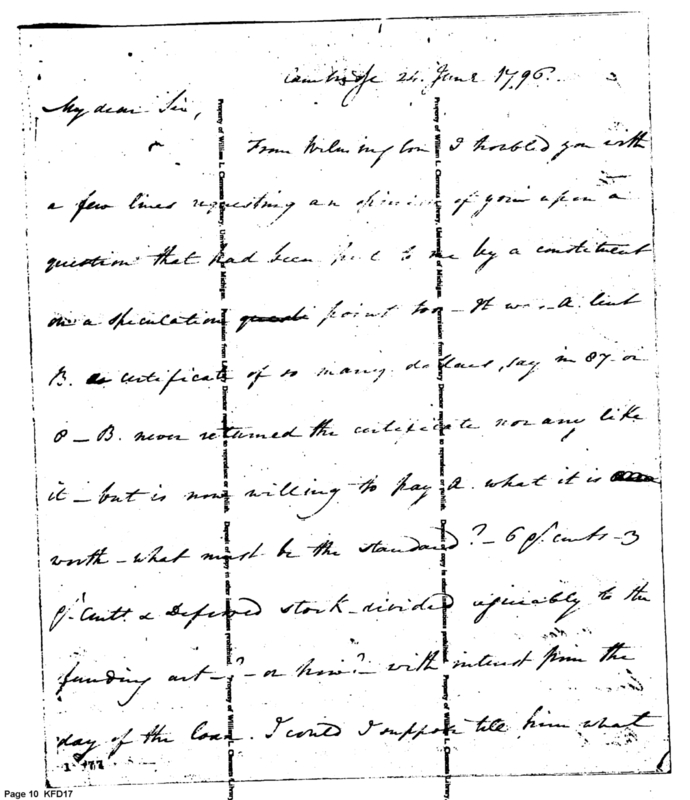 Cambridge 24. June 1796.
My dear Sir,
From Wilmington I troubled you with
a few lines requesting an opinion of your upon a
question that had been put to me by a constituent
on a speculation point too - It was - A. lent
B. a certificate of so many dollars, say in 87 or
8 - B. never returned the certificate nor any like
it - but is now willing to pay A. what it is
worth - what must be the standard? - 6 pr. cents - 3
pr. Cents. & Deferred stock - divided agreeably to the
funding act - ? - or how? - with interest from the
day of the Loan. I could I suppose tell him what
1 77
Property of William L. Clements Library, University of Michigan. Permission from Library Director required to reproduce or publish. Deposit of copy in other institutions prohibited. Property of William L. Clements Library
Property of William L. Clements Library, University of Michigan. Permission from Library Director required to reproduce or publish. Deposit of copy in other institutions prohibited. Property of William L. Clements Library
Page 10 KFD17